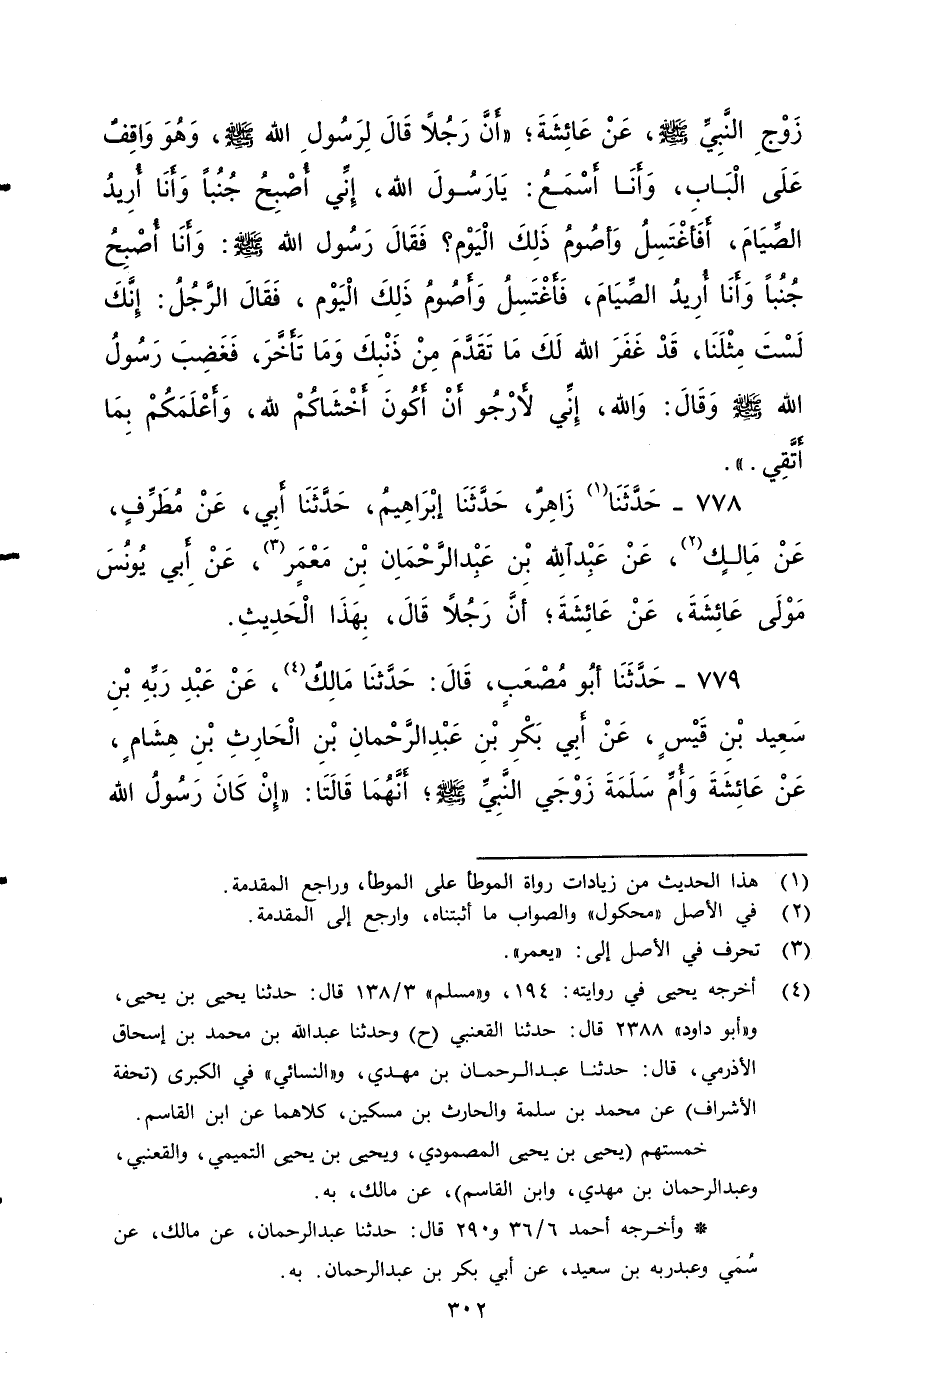 زَوْجِ النَّبِيِّ ﷺ، عَنْ عَائِشَةَ؛ «أَنَّ رَجُلاً قَالَ لِرَسُولِ الله ﷺ، وَهُوَ وَاقِفٌ
عَلَى الْبَابِ، وَأَنَـا أَسْمَعُ: يَارَسُـولَ الله، إِنِّي أُصْبِحُ جُنُباً وَأَنَا أُرِيدُ
الصِّيَامَ، أَفَأَغْتَسِلُ وَأَصُومُ ذَلِكَ الْيَوْم؟ فَقَالَ رَسُول الله ﷺ: وَأَنَا أُصْبِحُ
جُنُباً وَأَنَا أُرِيدُ الصِّيَامَ، فَأَغْتَسِلُ وَأَصُومُ ذَلِكَ الْيَوْم ، فَقَالَ الرَّجُلُ: إِنَّكَ
لَسْتَ مِثْلَنَا، قَدْ غَفَرَ الله لَكَ مَا تَقَدَّمَ مِنْ ذَنْبِكَ وَمَا تَأَخَّرَ، فَغَضِبَ رَسُولُ
الله ﷺ وَقَالَ: وَالله، إِنِّي لأَرْجُو أَنْ أَكُونَ أَخْشَاكُمْ لله، وَأَعْلَمَكُمْ بِمَا
أَتَّقِي .».
٧٧٨ ـ حَدَّثَنَا(١) زَاهِرٌ، حَدَّثَنَا إِبْرَاهِيمُ، حَدَّثَنَا أَبِي، عَنْ مُطَرِّفٍ،
عَنْ مَالِـكٍ(٢)، عَنْ عَبْدِالله بْنِ عَبْدِالرَّحْمَان بْنِ مَعْمَرٍ(٣)، عَنْ أَبِي يُونُسَ
مَوْلَى عَائِشَةَ، عَنْ عَائِشَةَ؛ أَنَّ رَجُلاً قَالَ، بِهَذَا الْحَدِيثِ.
٧٧٩ ـ حَدَّثَنَا أَبُو مُصْعَبٍ، قَالَ: حَدَّثَنَا مَالِكٌ(٤)، عَنْ عَبْدِ رَبِّهِ بْنِ
سَعِيد بْنِ قَيْسٍ، عَنْ أَبِي بَكْرِ بْنِ عَبْدِالرَّحْمانِ بْنِ الْحَارِثِ بْنِ هِشَامٍ،
عَنْ عَائِشَةَ وَأُمِّ سَلَمَةَ زَوْجَي النَّبِيِّ ﷺ؛ أَنَّهُمَا قَالَتَا: «إِنْ كَانَ رَسُولُ الله
(١) هذا الحديث من زيادات رواة الموطأ على الموطأ، وراجع المقدمة.
(٢) في الأصل «محكول» والصواب ما أثبتناه، وارجع إلى المقدمة.
(٣) تحرف في الأصل إلى: «يعمر».
(٤) أخرجه يحيى في روايته: ١٩٤، و«مسلم» ١٣٨/٣ قال: حدثنا يحيى بن يحيى،
و«أبو داود» ٢٣٨٨ قال: حدثنا القعنبي (ح) وحدثنا عبدالله بن محمد بن إسحاق
الأذرمي، قال: حدثنـا عبـدالـرحمـان بن مهـدي، و«النسائي» في الكبرى (تحفة
الأشراف) عن محمد بن سلمة والحارث بن مسكين، كلاهما عن ابن القاسم.
خمستهم (يحيى بن يحيى المصمودي، ويحيى بن يحيى التميمي، والقعنبي،
وعبدالرحمان بن مهدي، وابن القاسم)، عن مالك، به.
* وأخـرجه أحمد ٣٦/٦ و٢٩٠ قال: حدثنا عبدالرحمان، عن مالك، عن
سُمَي وعبدربه بن سعيد، عن أبي بكر بن عبدالرحمان. به.
٣٠٢